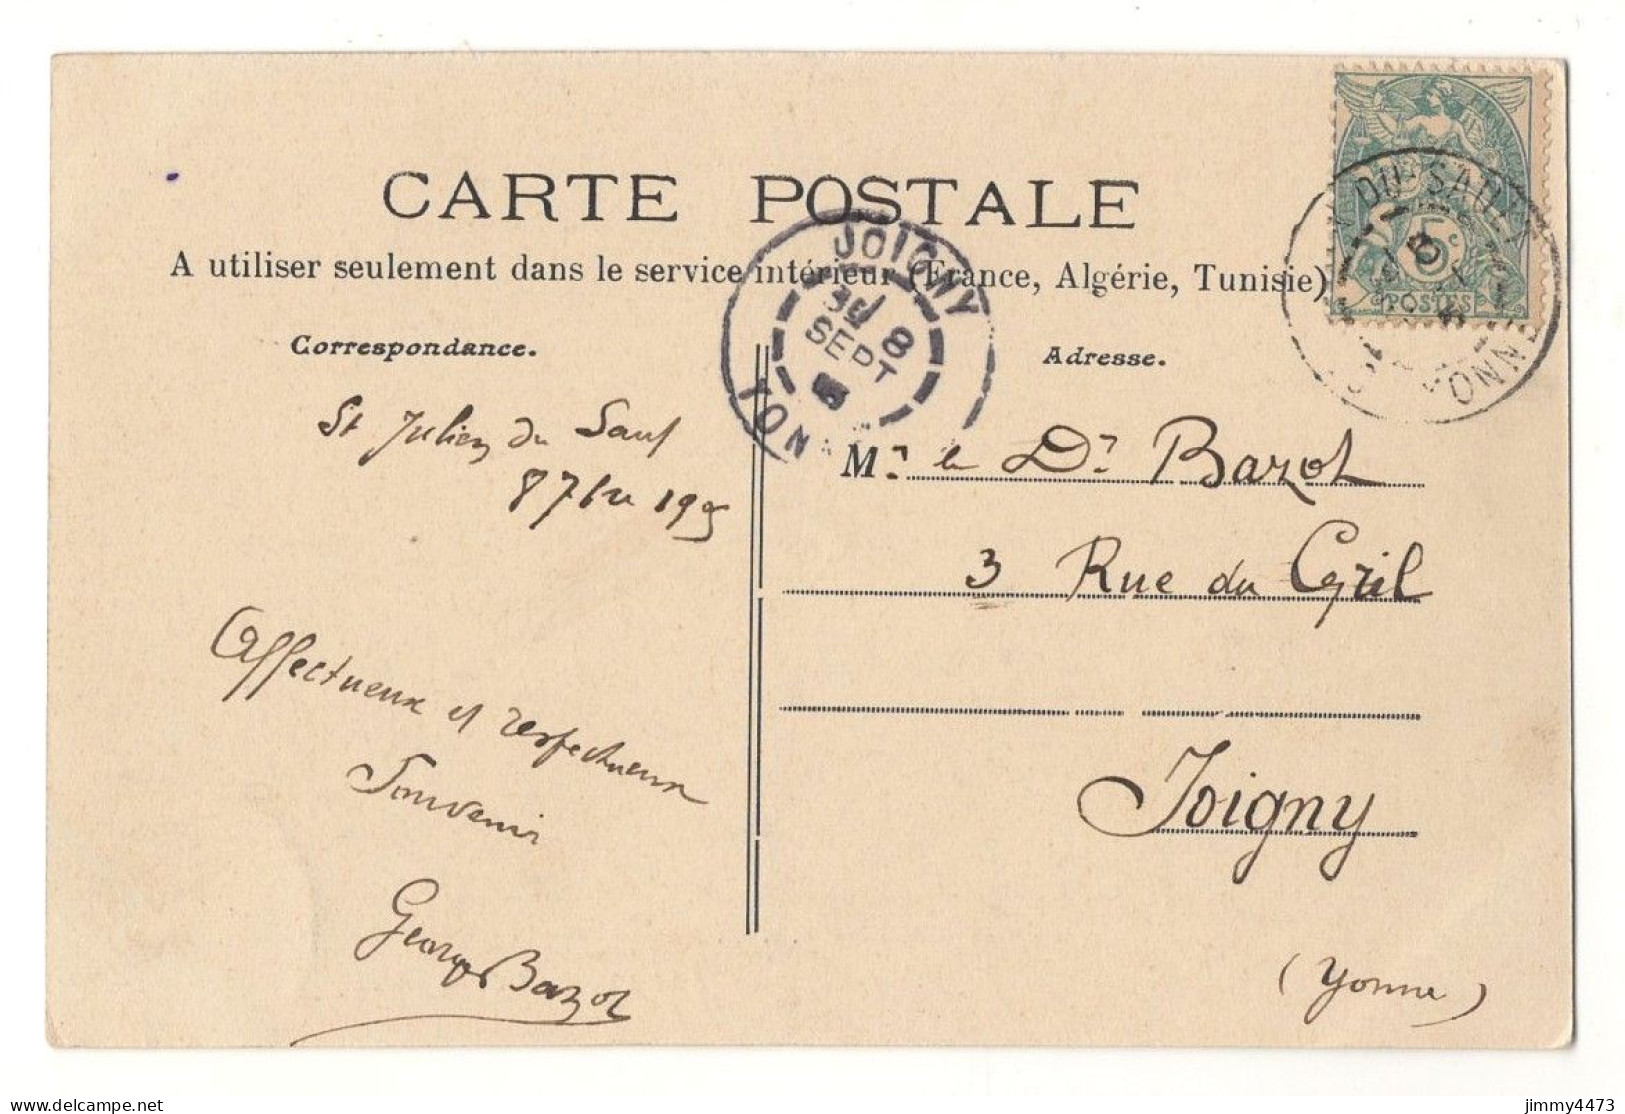 CARTE POSTALE
A utiliser seulement dans le service intérieur (France, Algérie, Tunisie)
Correspondance.
Adresse.
JOIGNY
8
SEPT
YONNE
DU SAULT
YONNE
5c
POSTES
St Julien du Saul
8 7bre 1905
Affectueux et respectueux
Souvenir
Georges Bazot
Mr le Dr Bazot
3 Rue du Gril
Joigny
(Yonne)
delcampe.net
jimmy4473